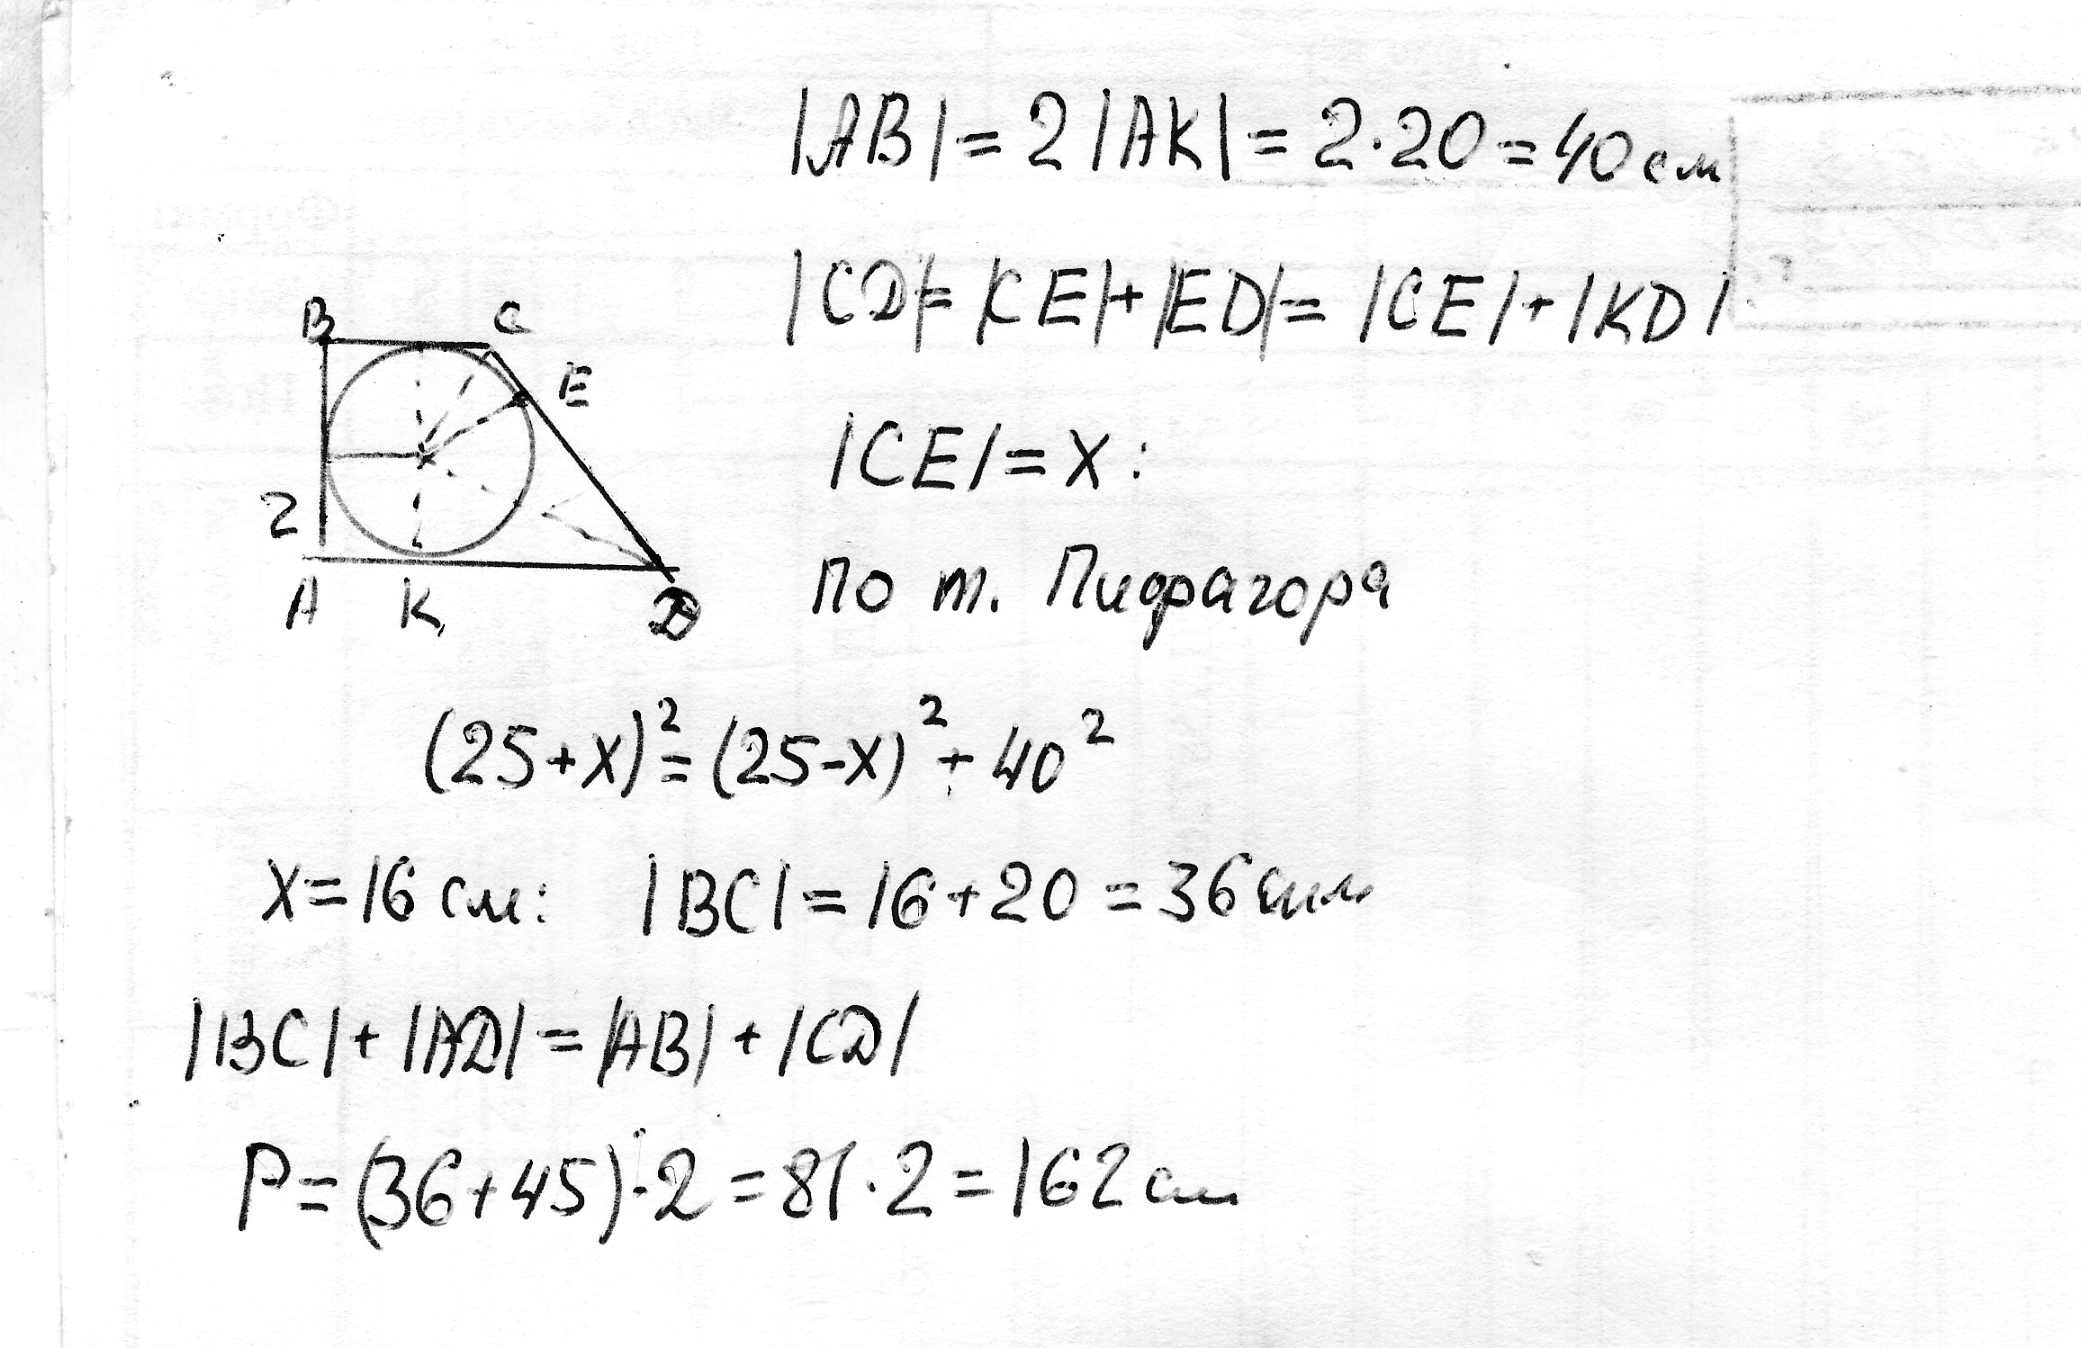 |AB| = 2|AK| = 2·20 = 40 см
|CD| = |CE| + |ED| = |CE| + |KD|
B C
E
2
A K D
|CE| = x:
По т. Пифагора
(25+x)² = (25-x)² + 40²
x = 16 см: |BC| = 16 + 20 = 36 см
|BC| + |AD| = |AB| + |CD|
P = (36+45)·2 = 81·2 = 162 см